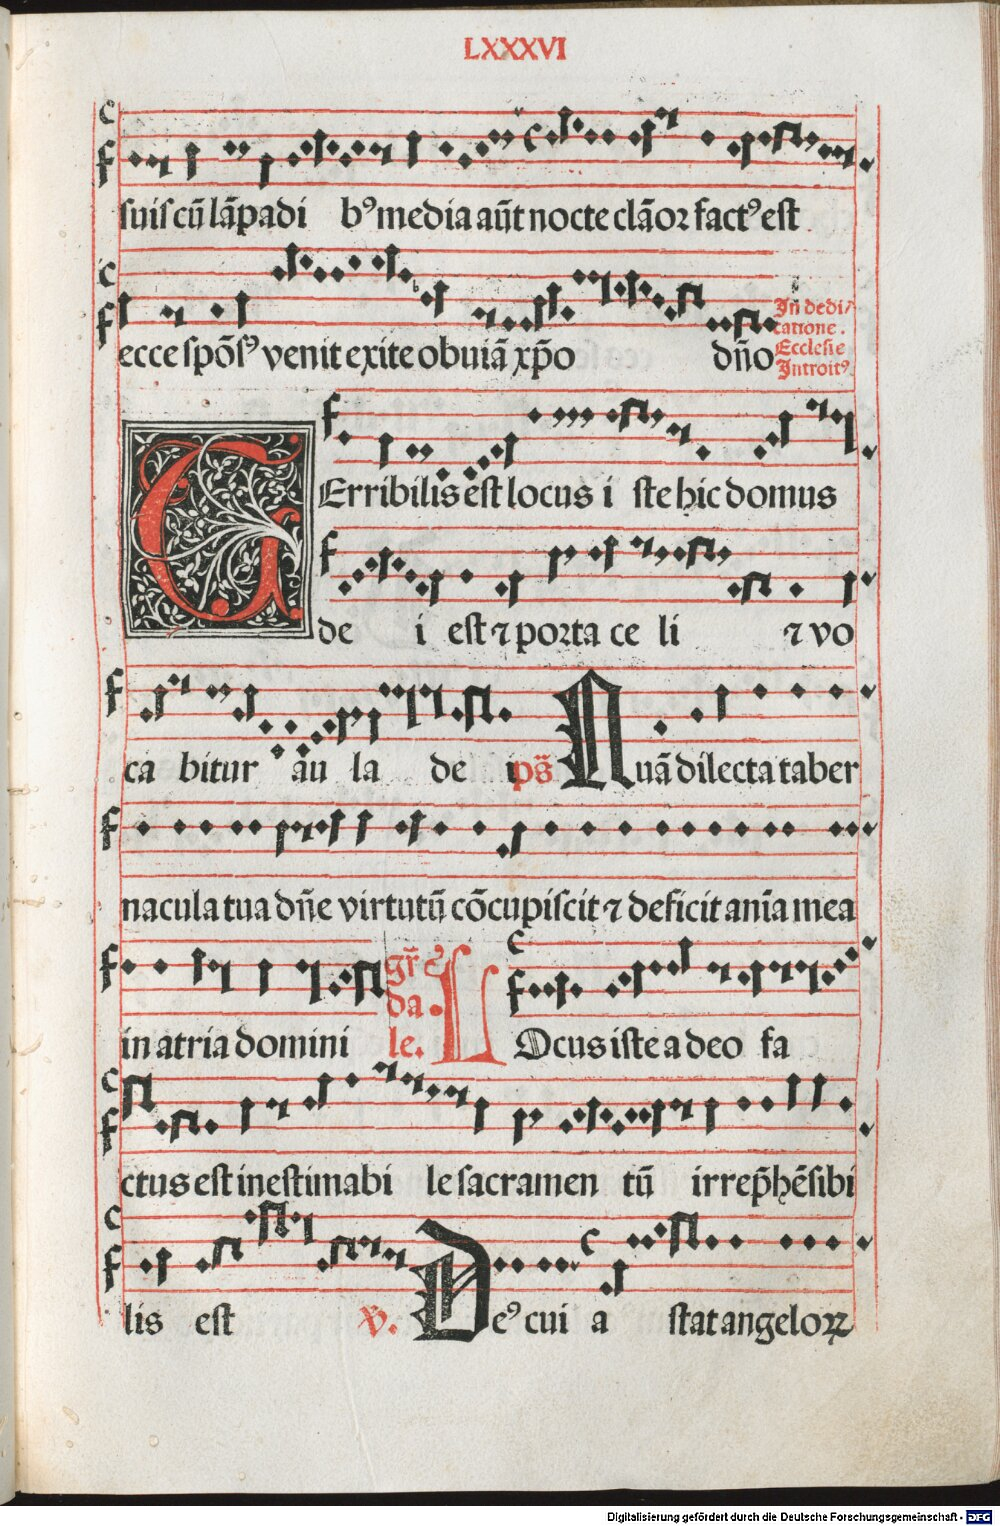 LXXXVI
suis cū lāpadi bꝰ media aūt nocte clāoꝛ factꝰ est
ecce spōsꝰ venit exite obuiā xp̄o dn̄o
In dedi/
catione.
Ecclesie
Introitꝰ
TErribilis est locus i ste hic domus
de i est ⁊ poꝛta ce li ⁊ vo
ca bitur au la de i ps̄ Quā dilecta taber
nacula tua dn̄e virtutū cōcupiscit ⁊ deficit anīa mea
in atria domini
gr̄
da
le.
LOcus iste a deo fa
ctus est inestimabi le sacramen tū irrep̄hēsibi
lis est v̄. Deꝰ cui a stat angeloꝝ
Digitalisierung gefördert durch die Deutsche Forschungsgemeinschaft - DFG